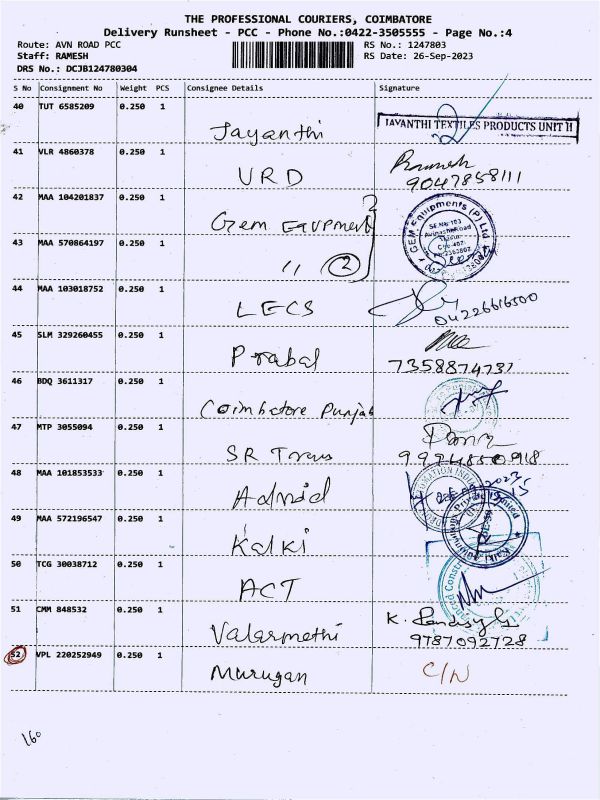 THE PROFESSIONAL COURIERS, COIMBATORE
Delivery Runsheet - PCC - Phone No.:0422-3505555 - Page No.:4
Route: AVN ROAD PCC RS No.: 1247803
Staff: RAMESH RS Date: 26-Sep-2023
DRS No.: DCJB124780304
S No Consignment No Weight PCS Consignee Details Signature
40 TUT 6585209 0.250 1 Jayanthi JAYANTHI TEXTILES PRODUCTS UNIT II
41 VLR 4860378 0.250 1 URD 9047858111
42 MAA 104201837 0.250 1 Gem Eqvpment GEM Equipments (P) Ltd
43 MAA 570864197 0.250 1 〃 2
44 MAA 103018752 0.250 1 LECS 04226616500
45 SLM 329260455 0.250 1 Prabal 7358874737
46 BDQ 3611317 0.250 1 Coimbatore Punjab
47 MTP 3055094 0.250 1 SR Trans 9994850918
48 MAA 101853533 0.250 1
49 MAA 572196547 0.250 1 Kalki
50 TCG 30038712 0.250 1 ACT
51 CMM 848532 0.250 1 Valarmethi 9787092728
52 VPL 220252949 0.250 1 Murugan C/N
160